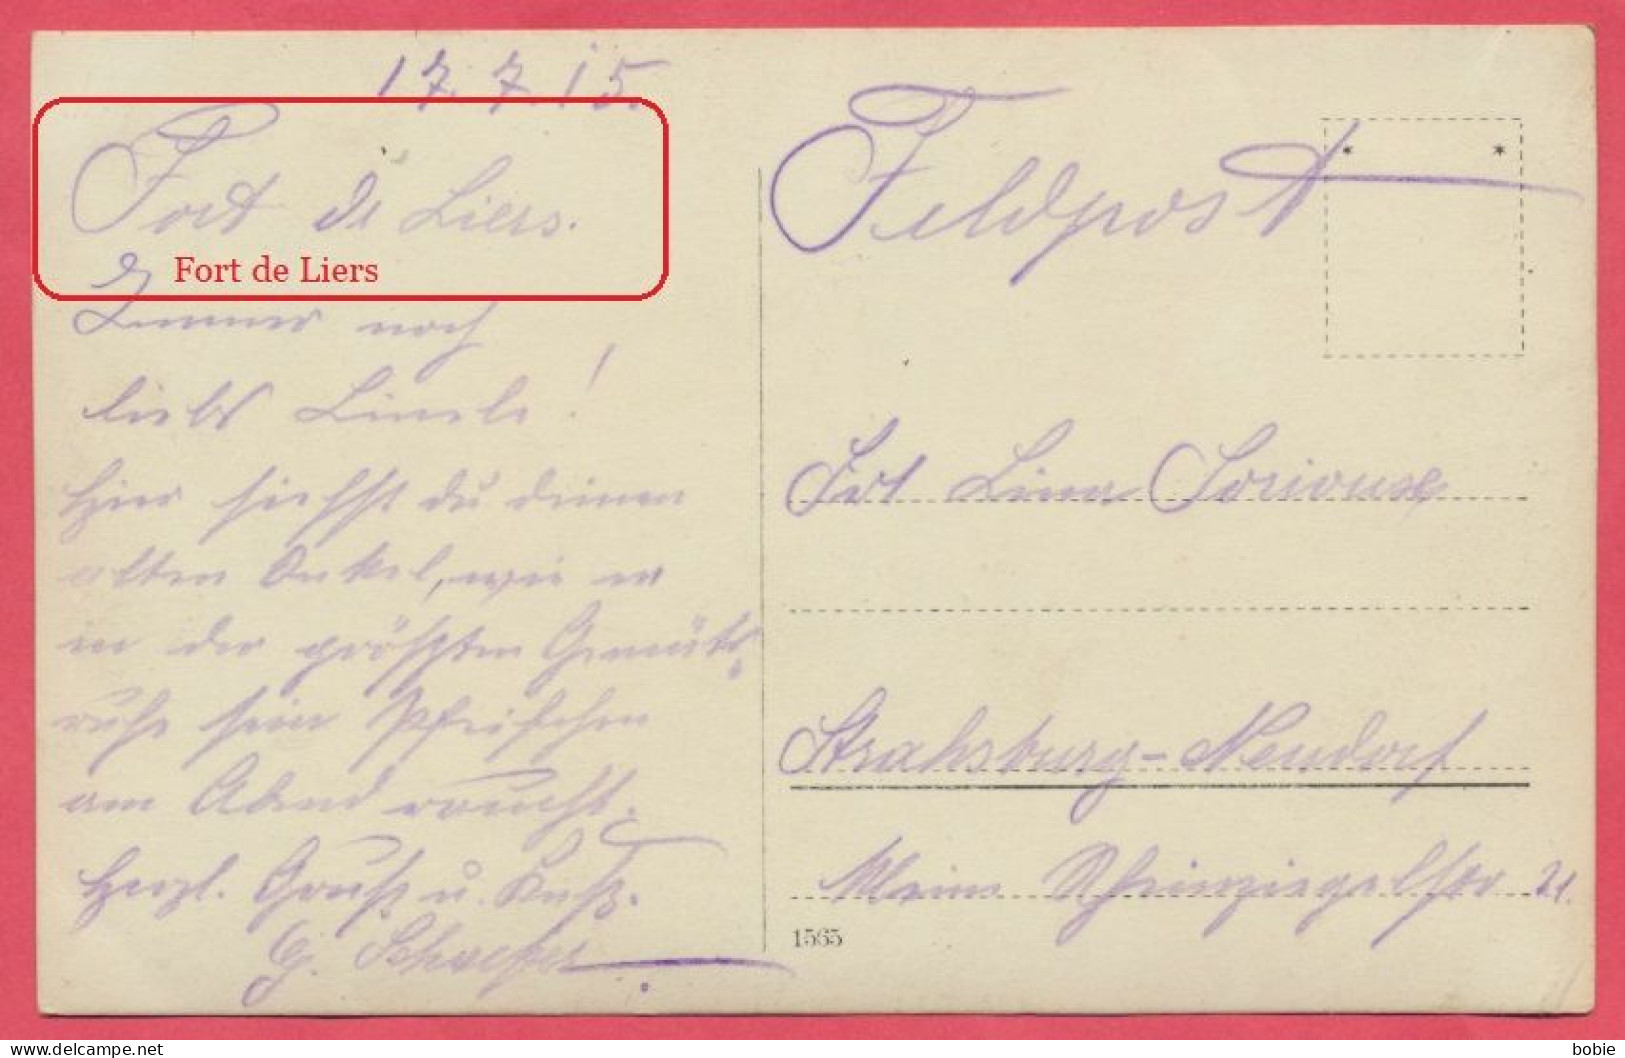 17.7.15.
Fort de Liers.
Fort de Liers
Immer noch
liebs Linele!
Hier siehst du deinen
alten Onkel, wie er
in der größten Gemüts-
ruhe sein Pfeifchen
am Abend raucht.
Herzl. Gruß u. Kuß.
G. Schaefer
Feldpost
Frl Lina
Strahsburg-Neudorf
Kleine Rheinziegelstr 21.
1565
delcampe.net
bobie